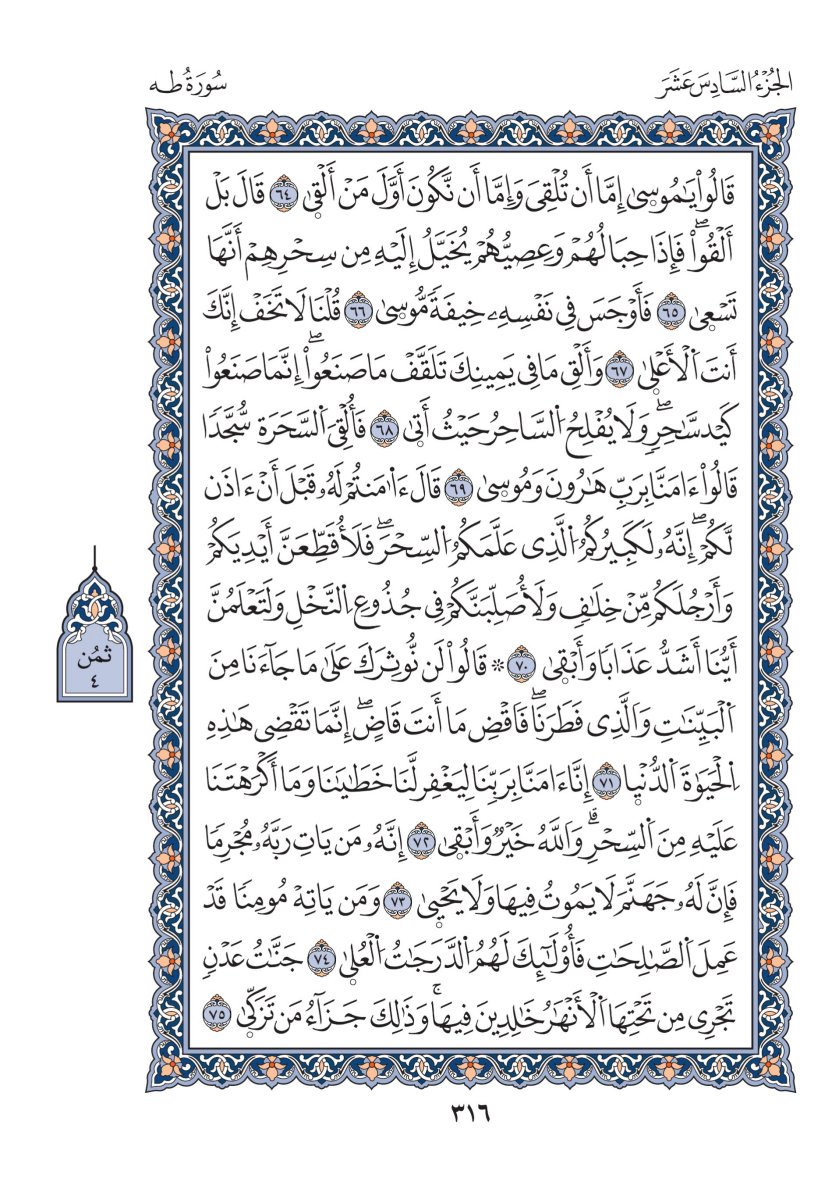 الجُزْءُ السَّادِسَ عَشَرَ
سُورَةُ طه
قَالُواْ يَٰمُوسَىٰ إِمَّا أَن تُلْقِيَ وَإِمَّا أَن نَّكُونَ أَوَّلَ مَنْ أَلْقَىٰ ٦٤ قَالَ بَلْ
أَلْقُواْۖ فَإِذَا حِبَالُهُمْ وَعِصِيُّهُمْ يُخَيَّلُ إِلَيْهِ مِن سِحْرِهِمْ أَنَّهَا
تَسْعَىٰ ٦٥ فَأَوْجَسَ فِي نَفْسِهِۦ خِيفَةٗ مُّوسَىٰ ٦٦ قُلْنَا لَا تَخَفْ إِنَّكَ
أَنتَ اَ۬لْأَعْلَىٰ ٦٧ وَأَلْقِ مَا فِي يَمِينِكَ تَلَقَّفْ مَا صَنَعُواْۖ إِنَّمَا صَنَعُواْ
كَيْدُ سَٰحِرٖۖ وَلَا يُفْلِحُ اُ۬لسَّاحِرُ حَيْثُ أَتَىٰ ٦٨ فَأُلْقِيَ اَ۬لسَّحَرَة سُّجَّدٗا
قَالُواْ ءَامَنَّا بِرَبِّ هَٰرُونَ وَمُوسَىٰ ٦٩ قَالَ ءَا۬مَنتُمْ لَهُۥ قَبْلَ أَنْ ءَاذَن
لَّكُمْۖ إِنَّهُۥ لَكَبِيرُكُمُ اُ۬لَّذِي عَلَّمَكُمُ اُ۬لسِّحْرَۖ فَلَأُقَطِّعَنَّ أَيْدِيَكُمْ
وَأَرْجُلَكُم مِّنْ خِلَٰفٖ وَلَأُصَلِّبَنَّكُمْ فِي جُذُوعِ اِ۬لنَّخْلِ وَلَتَعْلَمُنَّ
أَيُّنَا أَشَدُّ عَذَابٗا وَأَبْقَىٰ ٧٠ ۞ قَالُواْ لَن نُّوثِرَكَ عَلَىٰ مَا جَآءَنَا مِنَ
اَ۬لْبَيِّنَٰتِ وَالَّذِي فَطَرَنَاۖ فَاقْضِ مَا أَنتَ قَاضٍۖ إِنَّمَا تَقْضِي هَٰذِهِ
اِ۬لْحَيَوٰةَ اَ۬لدُّنْيَا ٧١ إِنَّا ءَامَنَّا بِرَبِّنَا لِيَغْفِر لَّنَا خَطَٰيَٰنَا وَمَا أَكْرَهْتَنَا
عَلَيْهِ مِنَ اَ۬لسِّحْرِۗ وَاللَّهُ خَيْرٞ وَأَبْقَىٰ ٧٢ إِنَّهُۥ مَن يَاتِ رَبَّهُۥ مُجْرِمٗا
فَإِنَّ لَهُۥ جَهَنَّمَ لَا يَمُوتُ فِيهَا وَلَا يَحْيَىٰ ٧٣ وَمَن يَاتِهْ مُومِنٗا قَدْ
عَمِلَ اَ۬لصَّٰلِحَٰتِ فَأُوْلَٰٓئِكَ لَهُمُ اُ۬لدَّرَجَٰتُ اُ۬لْعُلَىٰ ٧٤ جَنَّٰتُ عَدْنٖ
تَجْرِي مِن تَحْتِهَا اَ۬لْأَنْهَٰرُ خَٰلِدِينَ فِيهَاۚ وَذَٰلِكَ جَزَآءُ مَن تَزَكَّىٰ ٧٥
ثمُن
٤
٣١٦